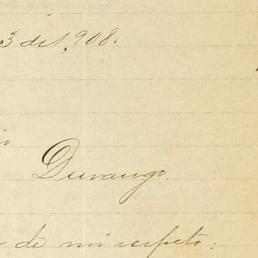 3 de 1,908.
Durango.
de mi respeto: